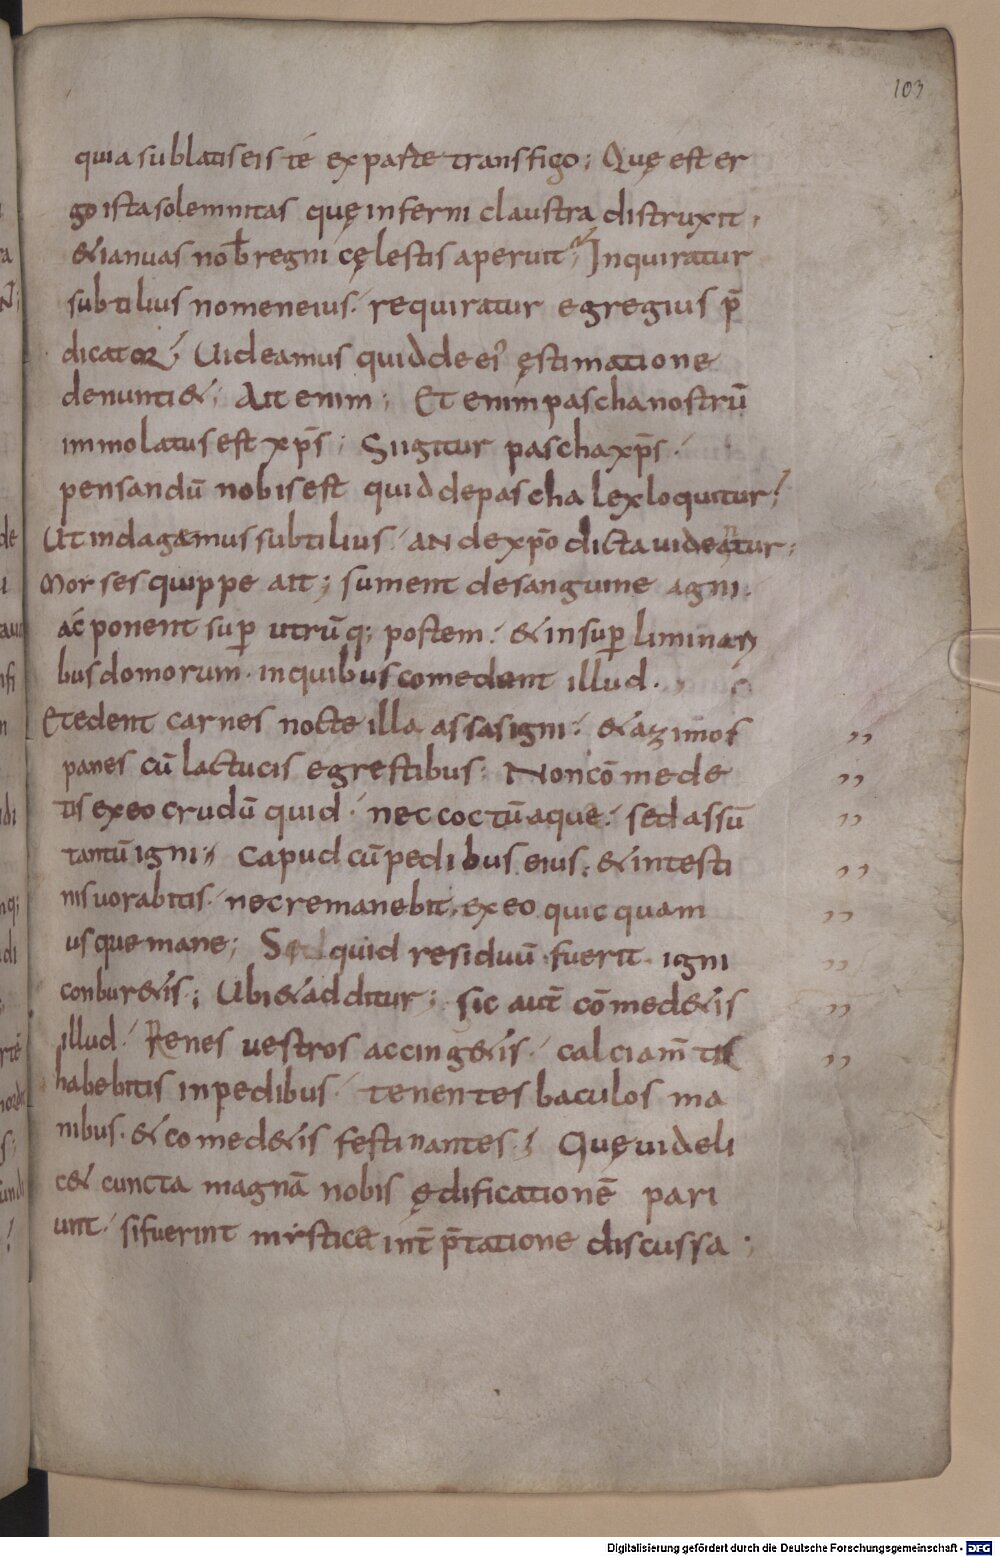 103
quia sublatis eis te ex parte transfigo; Quę est er
go ista solemnitas quę inferni claustra distruxit,
& ianuas nob̄ regni cęlestis aperuit; Inquiratur
subtilius nomen eius. requiratur egregius p̄
dicator; Uideamus quid de ei' ęstimatione
denunti&; Ait enim; Et enim pascha nostrū
immolatus est xp̄s; Si igitur pascha xp̄s.
pensandū nobis est quid de pascha lex loquitur?
Ut indagamus subtilius. an de xp̄o dicta uideatur;
Morses quippe ait; sument de sanguine agni.
ac ponent sup̄ utrūq; postem. & in sup̄ liminari
bus domorum. in quibus comedent illud.
Et edent carnes nocte illa assas igni. & azimos
panes cū lactucis egrestibus. Non cōmede
tis ex eo crudū quid. nec coctū aque. sed assū
tantū igni. Capud cū pedibus eius. & intesti
nis uorabitis. nec remanebit ex eo quicquam
usque mane; Sed quid residuū fuerit igni
conbur&is; Ubi & additur; sic aut̄ cōmed&is
illud. Renes vestros accing&is. calciam̄tis
habebitis in pedibus. tenentes baculos ma
nibus. & comed&is festinantes; Quę uideli
c& cuncta magnā nobis ędificationē pari
unt. si fuerint mystice int̄p̄tatione discussa;
Digitalisierung gefördert durch die Deutsche Forschungsgemeinschaft - DFG